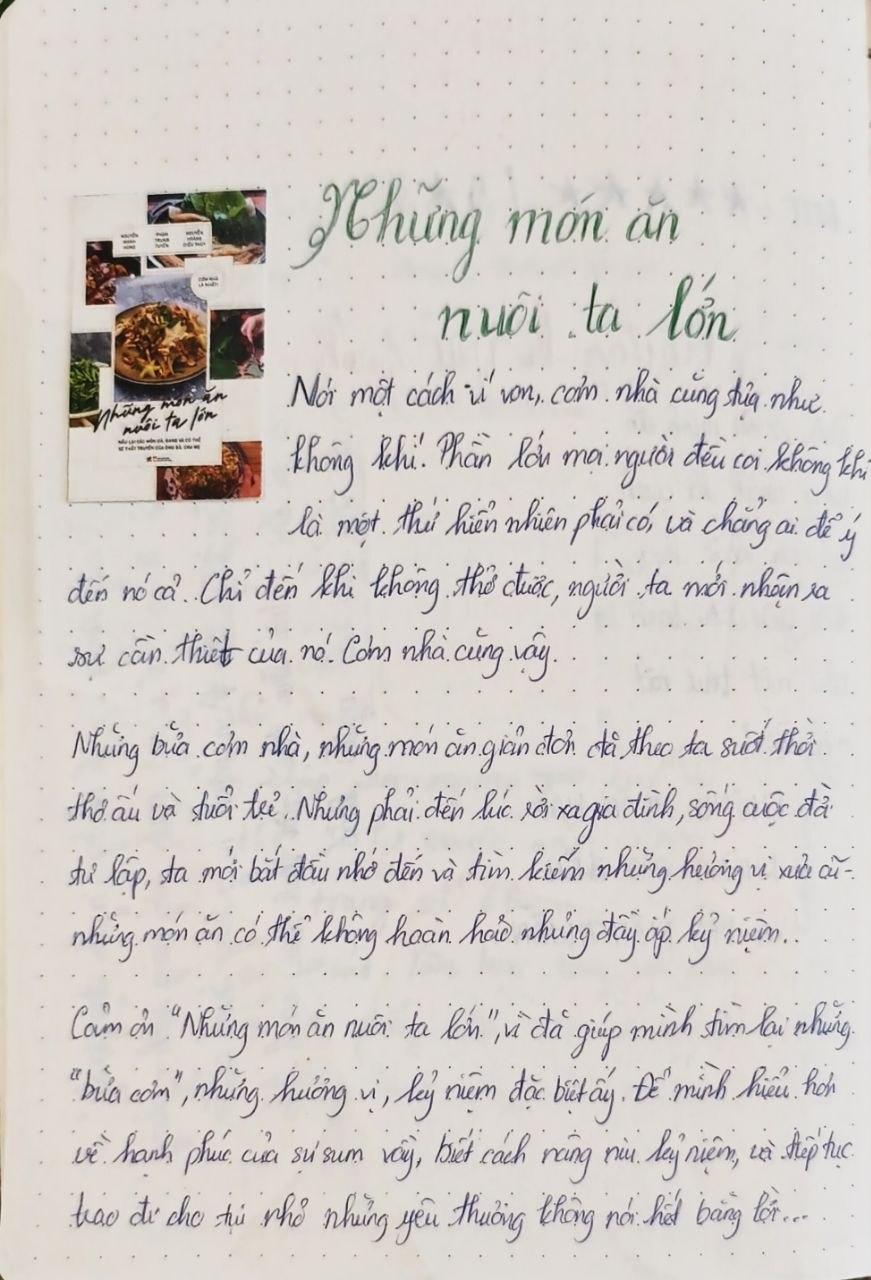 NGUYỄN MẠNH HÙNG
PHAN TRUNG TUYẾN
NGUYỄN HOÀNG DIỆU THỦY
CƠM NHÀ LÀ NHẤT!
Những món ăn
nuôi ta lớn
NẤU LẠI CÁC MÓN ĐÃ, ĐANG VÀ CÓ THỂ
SẼ THẤT TRUYỀN CỦA ÔNG BÀ, CHA MẸ
Những món ăn
nuôi ta lớn
Nói một cách ví von, cơm nhà cũng tựa như
không khí. Phần lớn mọi người đều coi không khí
là một thứ hiển nhiên phải có, và chẳng ai để ý
đến nó cả. Chỉ đến khi không thở được, người ta mới nhận ra
sự cần thiết của nó. Cơm nhà cũng vậy.
Những bữa cơm nhà, những món ăn giản đơn đã theo ta suốt thời
thơ ấu và tuổi trẻ. Nhưng phải đến lúc rời xa gia đình, sống cuộc đời
tự lập, ta mới bắt đầu nhớ đến và tìm kiếm những hương vị xưa cũ -
những món ăn có thể không hoàn hảo nhưng đầy ắp kỷ niệm..
Cảm ơn "Những món ăn nuôi ta lớn", vì đã giúp mình tìm lại những
"bữa cơm", những hương vị, kỷ niệm đặc biệt ấy. Để mình hiểu hơn
về hạnh phúc của sự sum vầy, biết cách nâng niu kỷ niệm, và tiếp tục
trao đi cho tụi nhỏ những yêu thương không nói hết bằng lời...